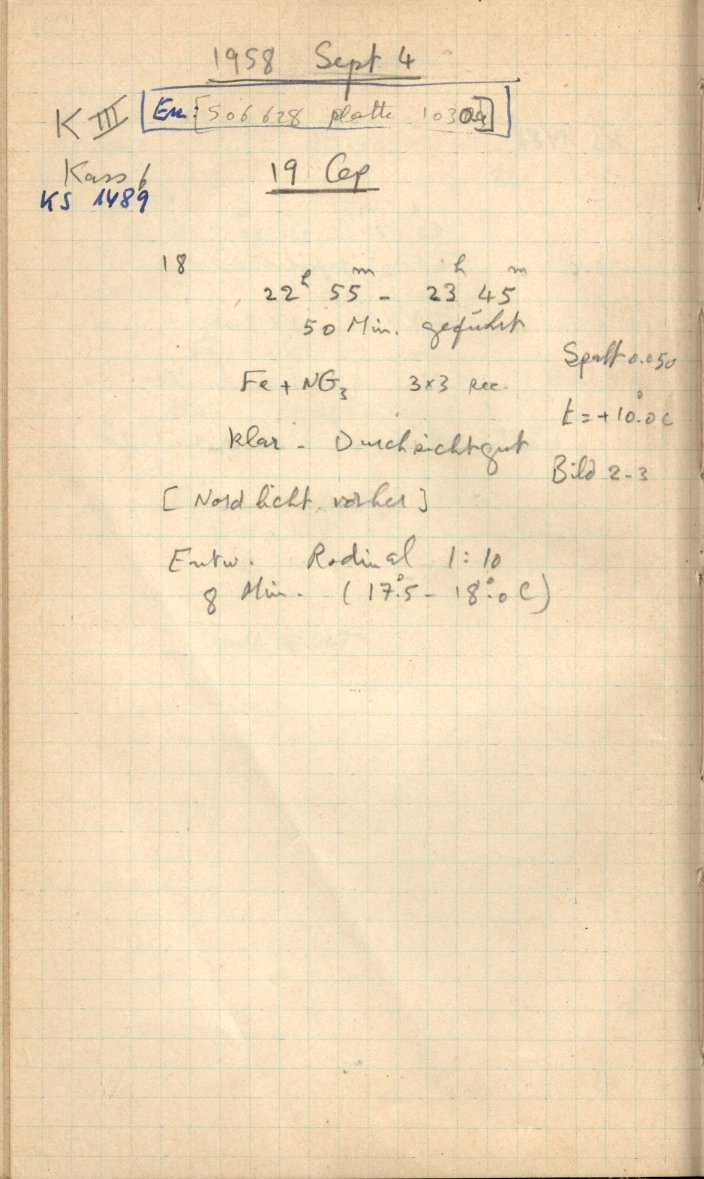 1958 Sept 4
K III Em: [506 628 platte 103aO]
Kass 6 19 Cep
KS 1489
18
22h 55m - 23h 45m
50 Min. geführt
Spalt 0.050
Fe + NG3 3x3 sec.
t = +10°.0 C
klar - Durchsicht gut
Bild 2-3
[Nordlicht vorher]
Entw. Rodinal 1:10
8 Min. (17°.5 - 18°.0 C)